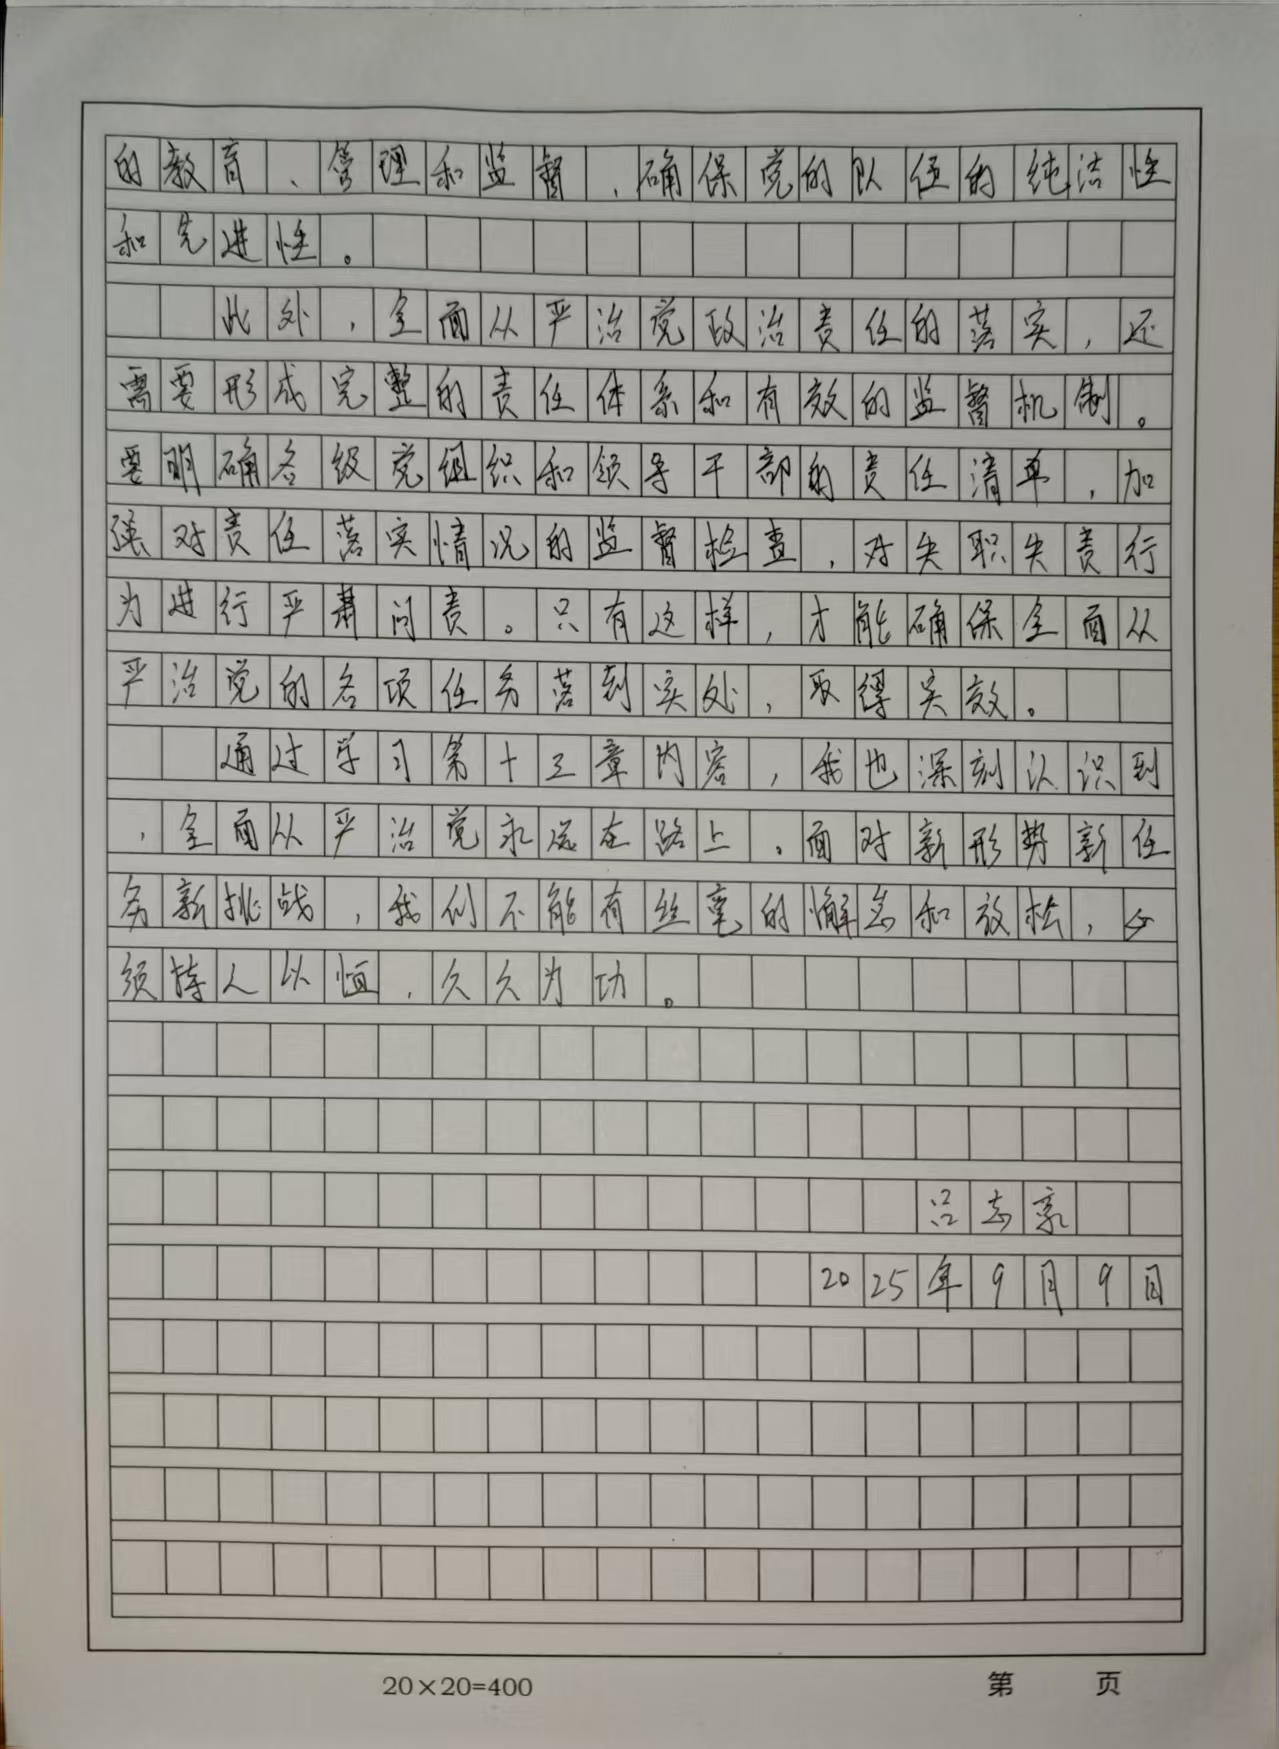 的教育、管理和监督，确保党的队伍的纯洁性
和先进性。
此外，全面从严治党政治责任的落实，还
需要形成完整的责任体系和有效的监督机制。
要明确各级党组织和领导干部的责任清单，加
强对责任落实情况的监督检查，对失职失责行
为进行严肃问责。只有这样，才能确保全面从
严治党的各项任务落到实处，取得实效。
通过学习第十三章内容，我也深刻认识到
，全面从严治党永远在路上。面对新形势新任
务新挑战，我们不能有丝毫的懈怠和放松，必
须持人以恒，久久为功。
吕志
2025年9月9日
20×20=400
第 页